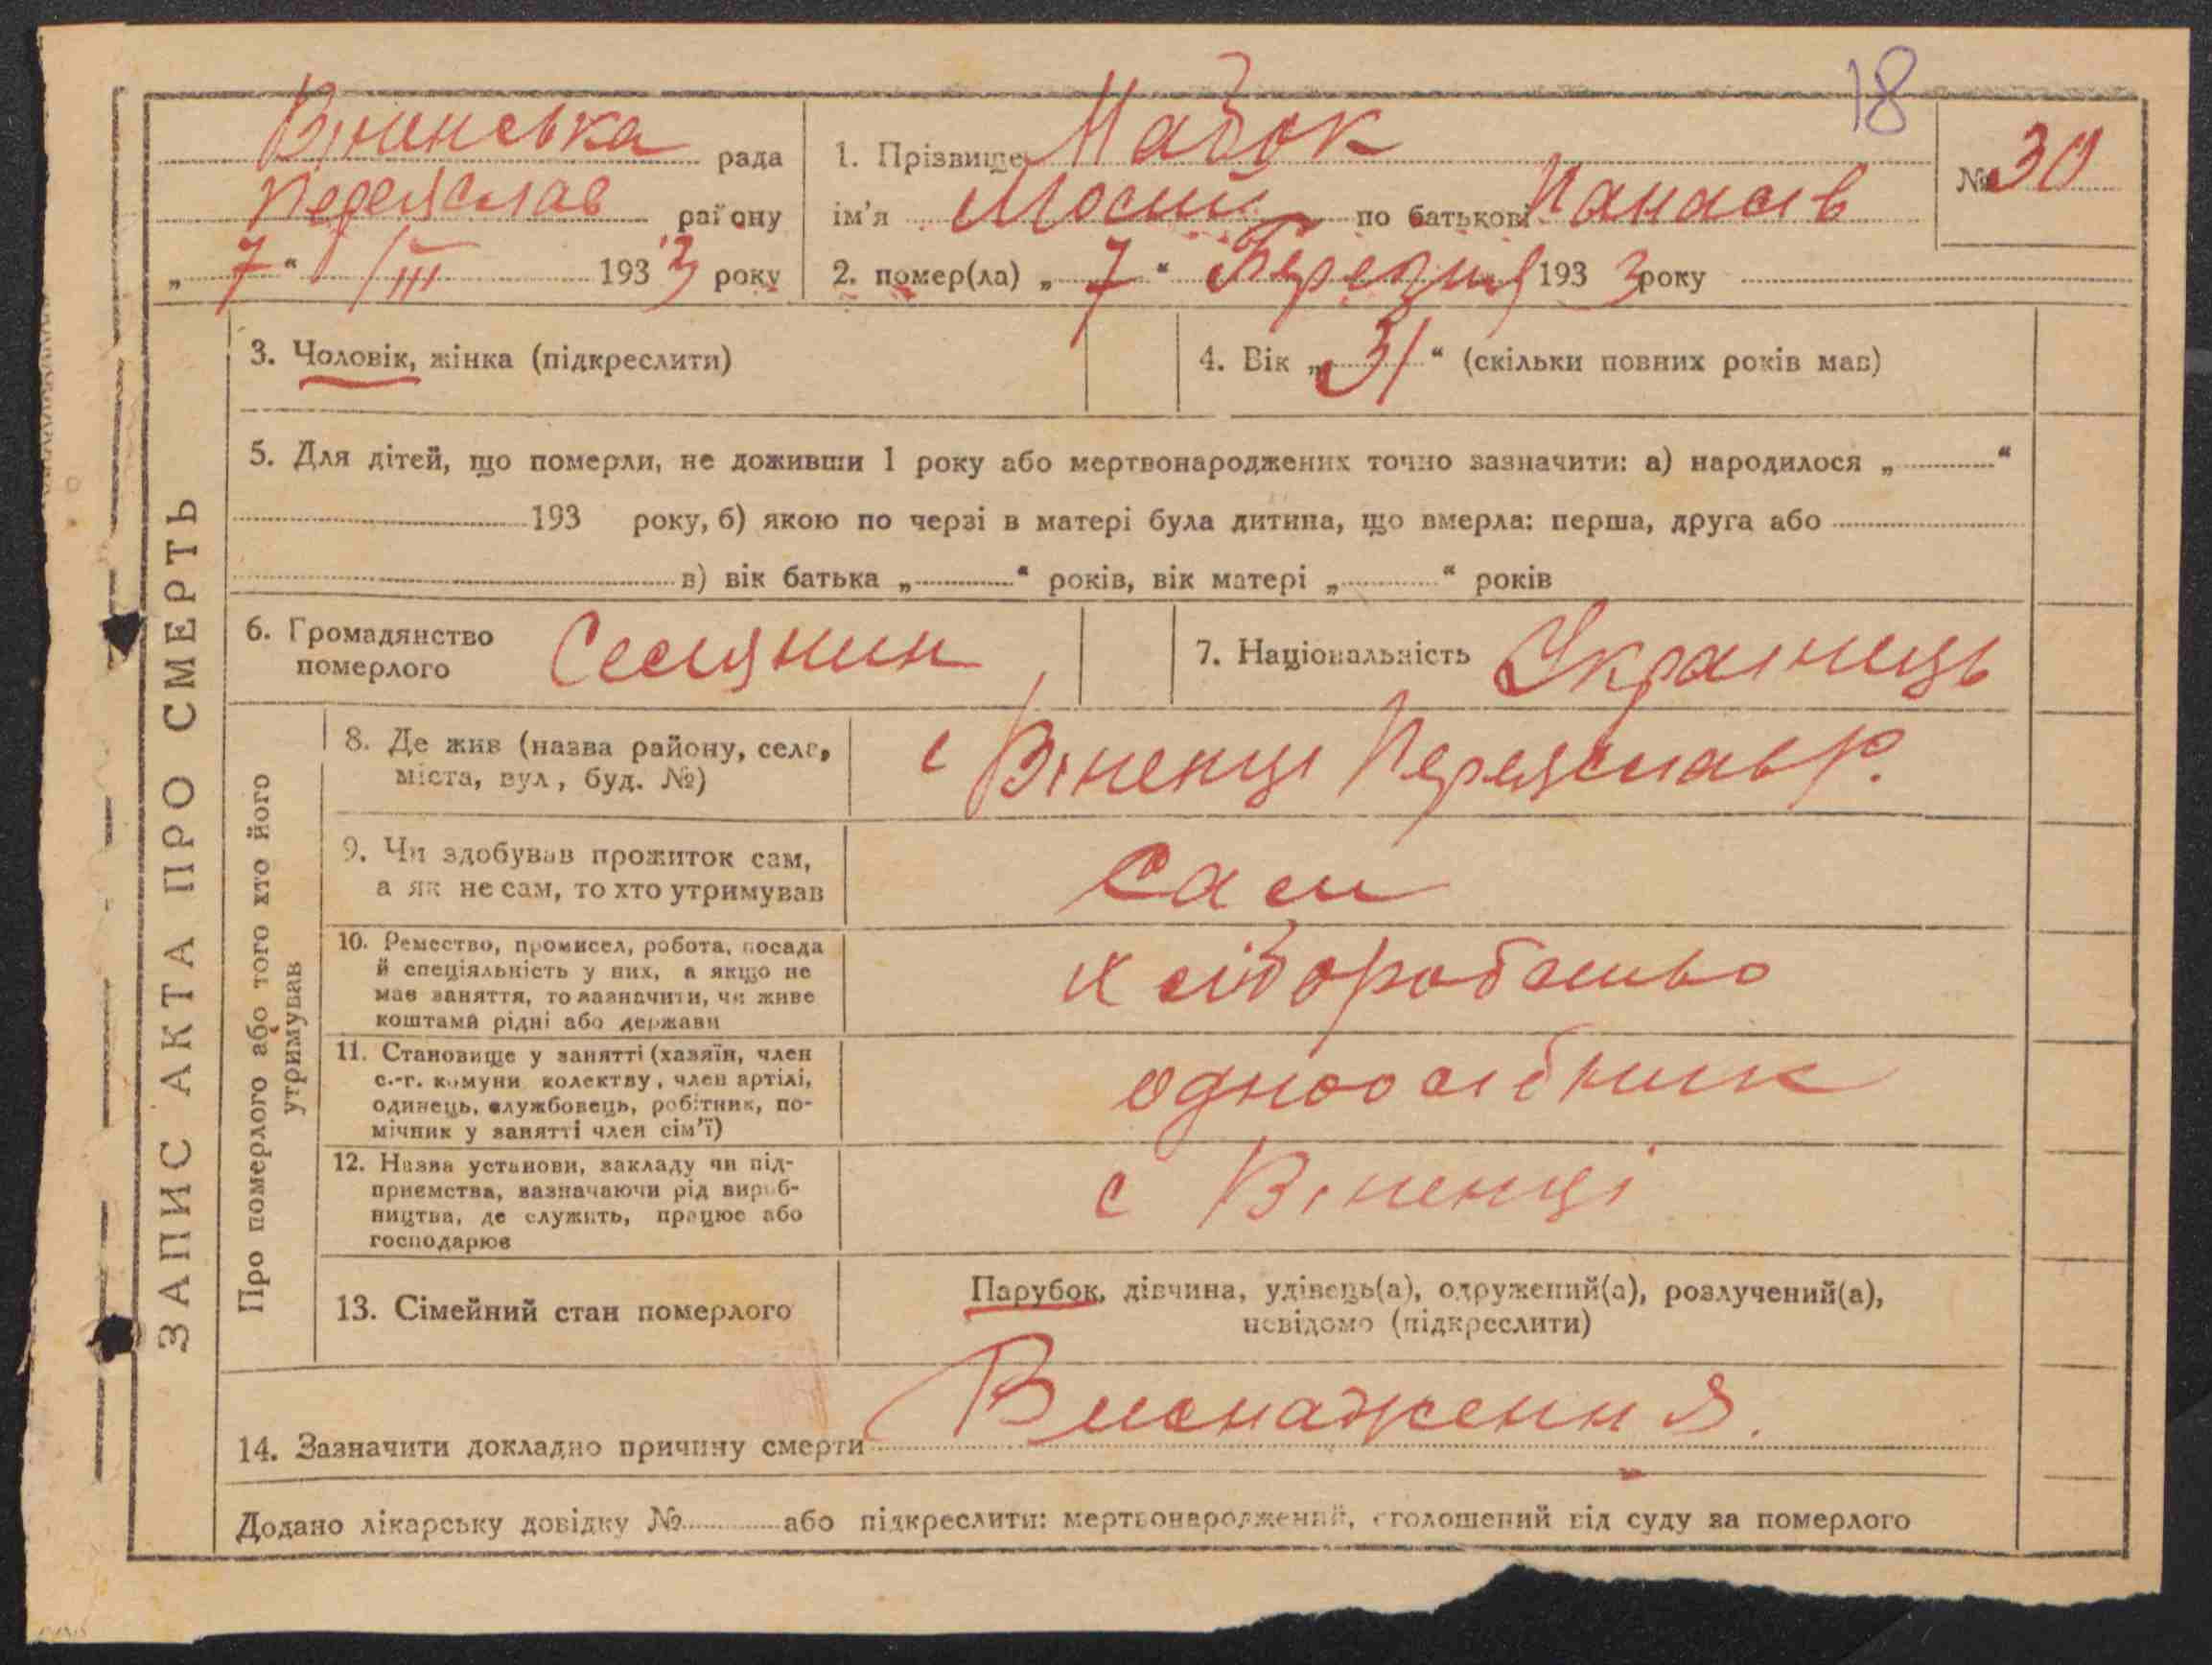 18
Віненська рада
Переяслав району
„ 7 “ /III 1933 року
1. Прізвище Мабок
ім'я Мосій по батькові Панасів
2. помер(ла) „ 7 “ Березня 1933 року
№ 30
3. Чоловік, жінка (підкреслити)
4. Вік „ 31 “ (скільки повних років мав)
5. Для дітей, що померли, не доживши 1 року або мертвонароджених точно зазначити: а) народилося „ “
193 року, б) якою по черзі в матері була дитина, що вмерла: перша, друга або
в) вік батька „ “ років, вік матері „ “ років
6. Громадянство
померлого Селянин
7. Національність Українець
ЗАПИС АКТА ПРО СМЕРТЬ
Про померлого або того хто його
утримував
8. Де жив (назва району, села,
міста, вул, буд. №)
с Віненці Переяслав р.
9. Чи здобував прожиток сам,
а як не сам, то хто утримував
Сам
10. Ремество, промисел, робота, посада
й спеціяльність у них, а якщо не
має заняття, то зазначити, чи живе
коштами рідні або держави
хліборобство
11. Становище у занятті (хазяїн, член
с.-г. комуни колективу, член артілі,
одинець, службовець, робітник, по-
мічник у занятті член сім'ї)
одноосібник
12. Назва установи, закладу чи під-
приємства, зазначаючи рід вироб-
ництва, де служить, працює або
господарює
с Віненці
13. Сімейний стан померлого
Парубок, дівчина, удівець(а), одружений(а), розлучений(а),
невідомо (підкреслити)
14. Зазначити докладно причину смерти Виснаження.
Додано лікарську довідку № або підкреслити: мертвонароджений, оголошений від суду за померлого